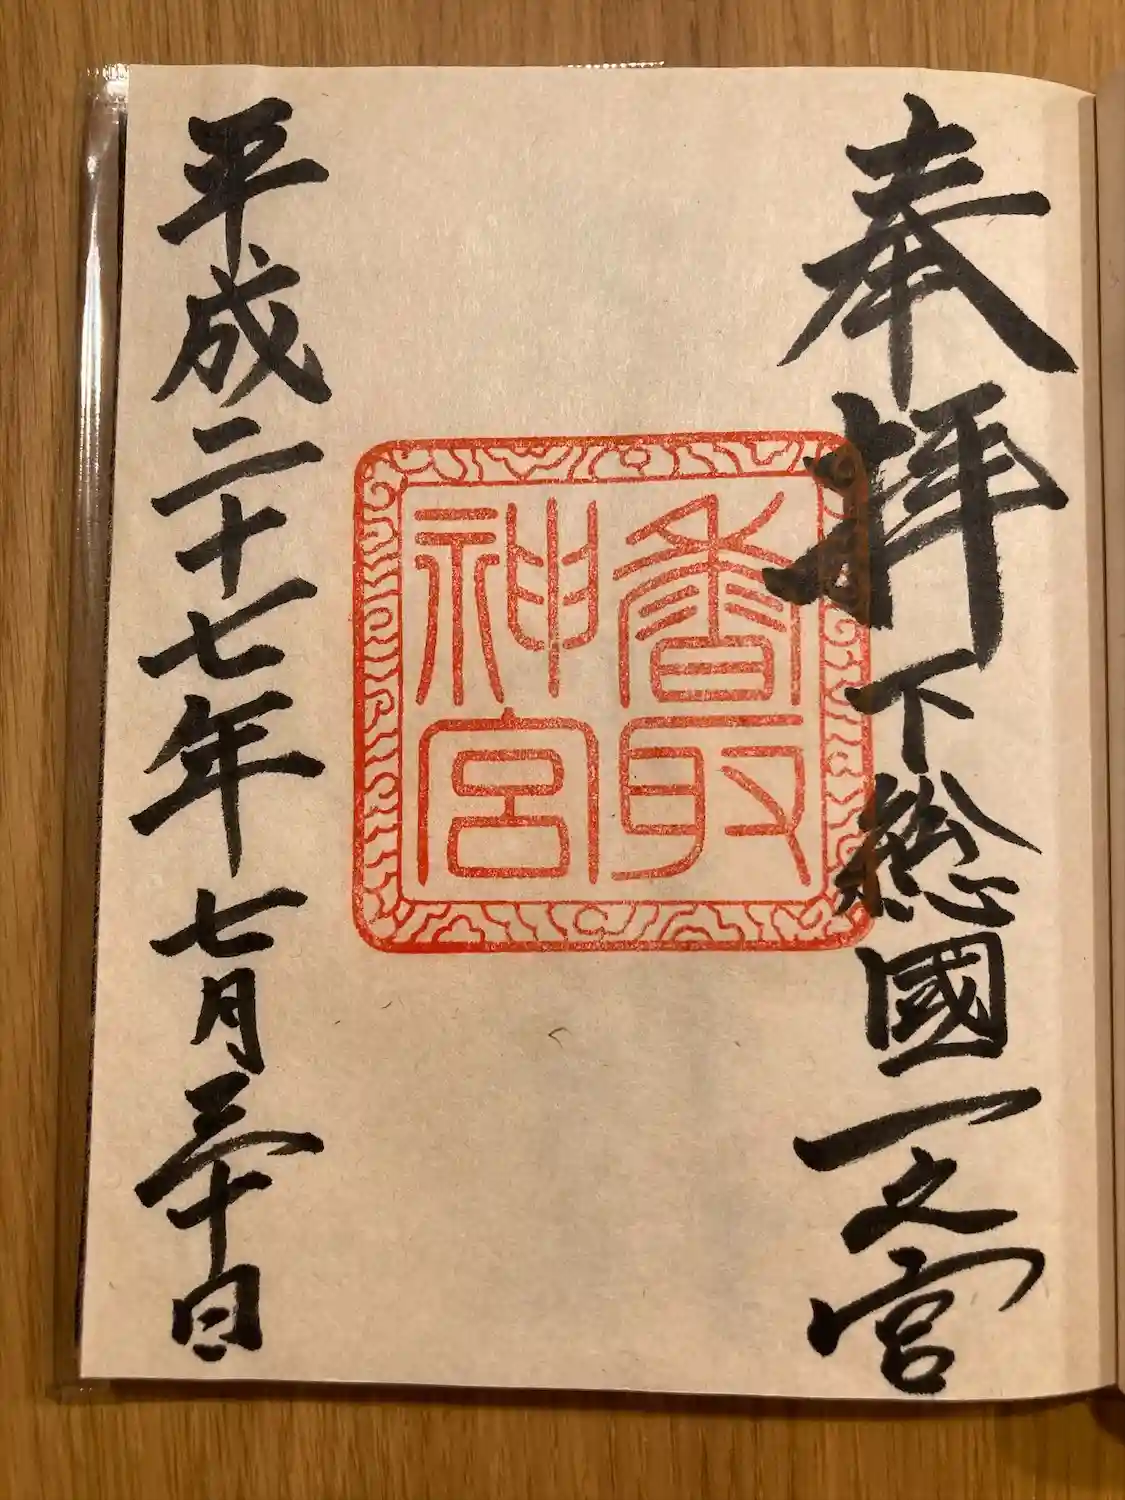 奉拝下総國一之宮
香取
神宮
平成二十七年七月三十日